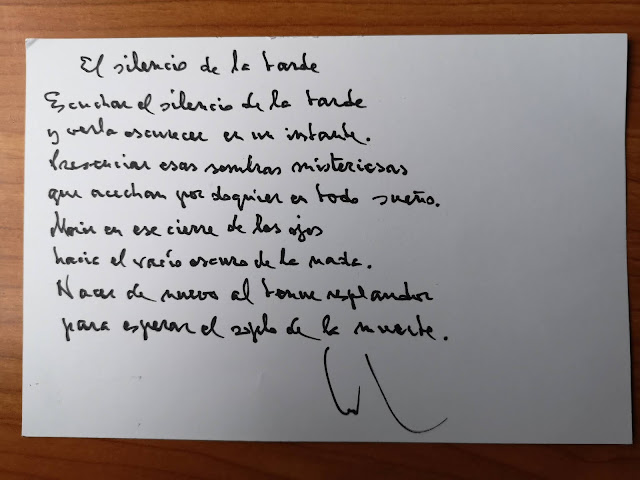 El silencio de la tarde
Escuchar el silencio de la tarde
y verla oscurecer en un instante.
Presenciar esas sombras misteriosas
que acechan por doquier en todo sueño.
Morir en ese cierre de los ojos
hacia el vacío oscuro de la nada.
Nacer de nuevo al tenue resplandor
para esperar el soplo de la muerte.